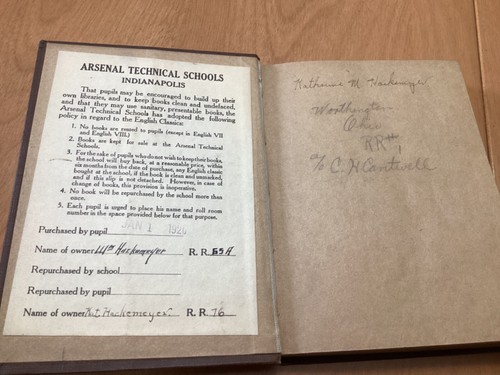 ARSENAL TECHNICAL SCHOOLS
INDIANAPOLIS
That pupils may be encouraged to build up their
own libraries, and to keep books clean and undefaced,
and that they may use sanitary, presentable books, the
Arsenal Technical Schools has adopted the following
policy in regard to the English Classics:
1. No books are rented to pupils (except in English VII
and English VIII.)
2. Books are kept for sale at the Arsenal Technical
Schools.
3. For the sake of pupils who do not wish to keep their books,
the school will buy back, at a reasonable price, within
six months from the date of purchase, any English classic
bought at the school, if the book is clean and unmarked,
and if this slip is not detached. However, in case of
change of books, this provision is inoperative.
4. No book will be repurchased by the school more than
once.
5. Each pupil is urged to place his name and roll room
number in the space provided below for that purpose.
Purchased by pupil JAN 1 192
Name of owner Hackemeyer R. R.
Repurchased by school
Repurchased by pupil
Name of owner Hackemeyer R. R. 76
Katherine M. Hackemeyer
Worthington
Ohio
RR#1
c/o C. H. Cantwell